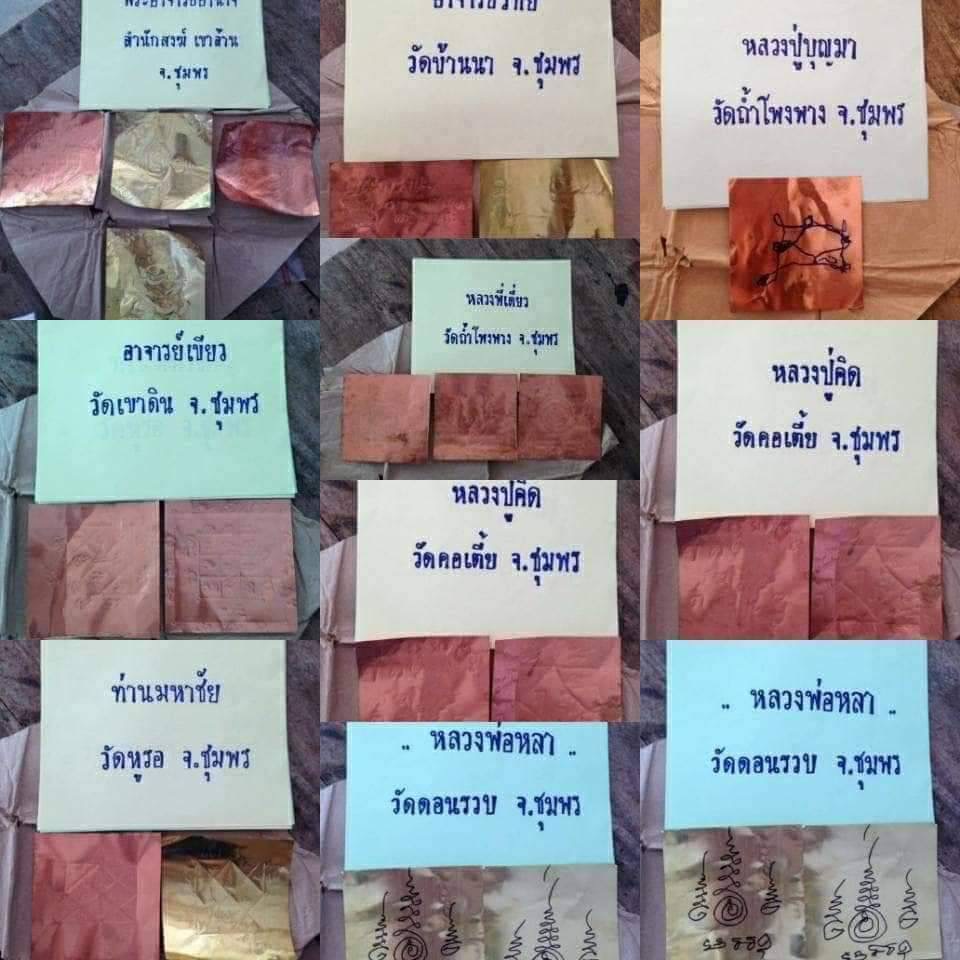 สำนักสงฆ์ เขาล้าน
จ.ชุมพร
วัดบ้านนา จ.ชุมพร
หลวงปู่บุญมา
วัดถ้ำโพงพาง จ.ชุมพร
อาจารย์เขียว
วัดเขาดิน จ.ชุมพร
หลวงพี่เตี่ยว
วัดถ้ำโพงพาง จ.ชุมพร
หลวงปู่คิด
วัดคอเตี้ย จ.ชุมพร
หลวงปู่คิด
วัดคอเตี้ย จ.ชุมพร
ท่านมหาชัย
วัดหูรอ จ.ชุมพร
.. หลวงพ่อหลา ..
วัดดอนรวบ จ.ชุมพร
.. หลวงพ่อหลา ..
วัดดอนรวบ จ.ชุมพร